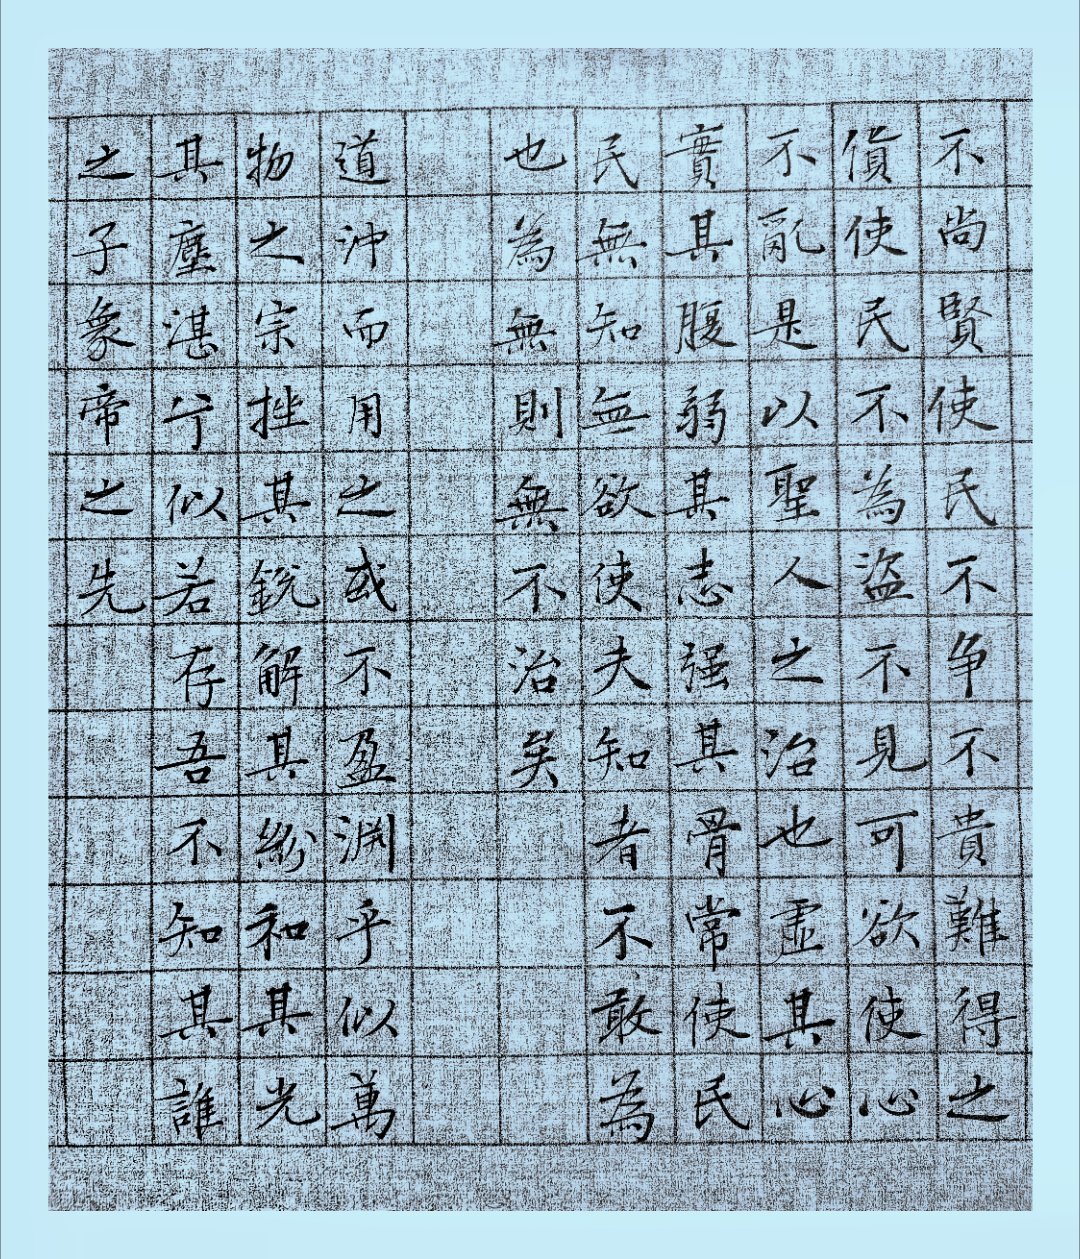 不尚賢使民不争不貴難得之
貨使民不為盗不見可欲使心
不亂是以聖人之治也虛其心
實其腹弱其志强其骨常使民
民無知無欲使夫知者不敢為
也為無則無不治矣
道沖而用之或不盈淵乎似萬
物之宗挫其銳解其紛和其光
其塵湛兮似若存吾不知其誰
之子象帝之先